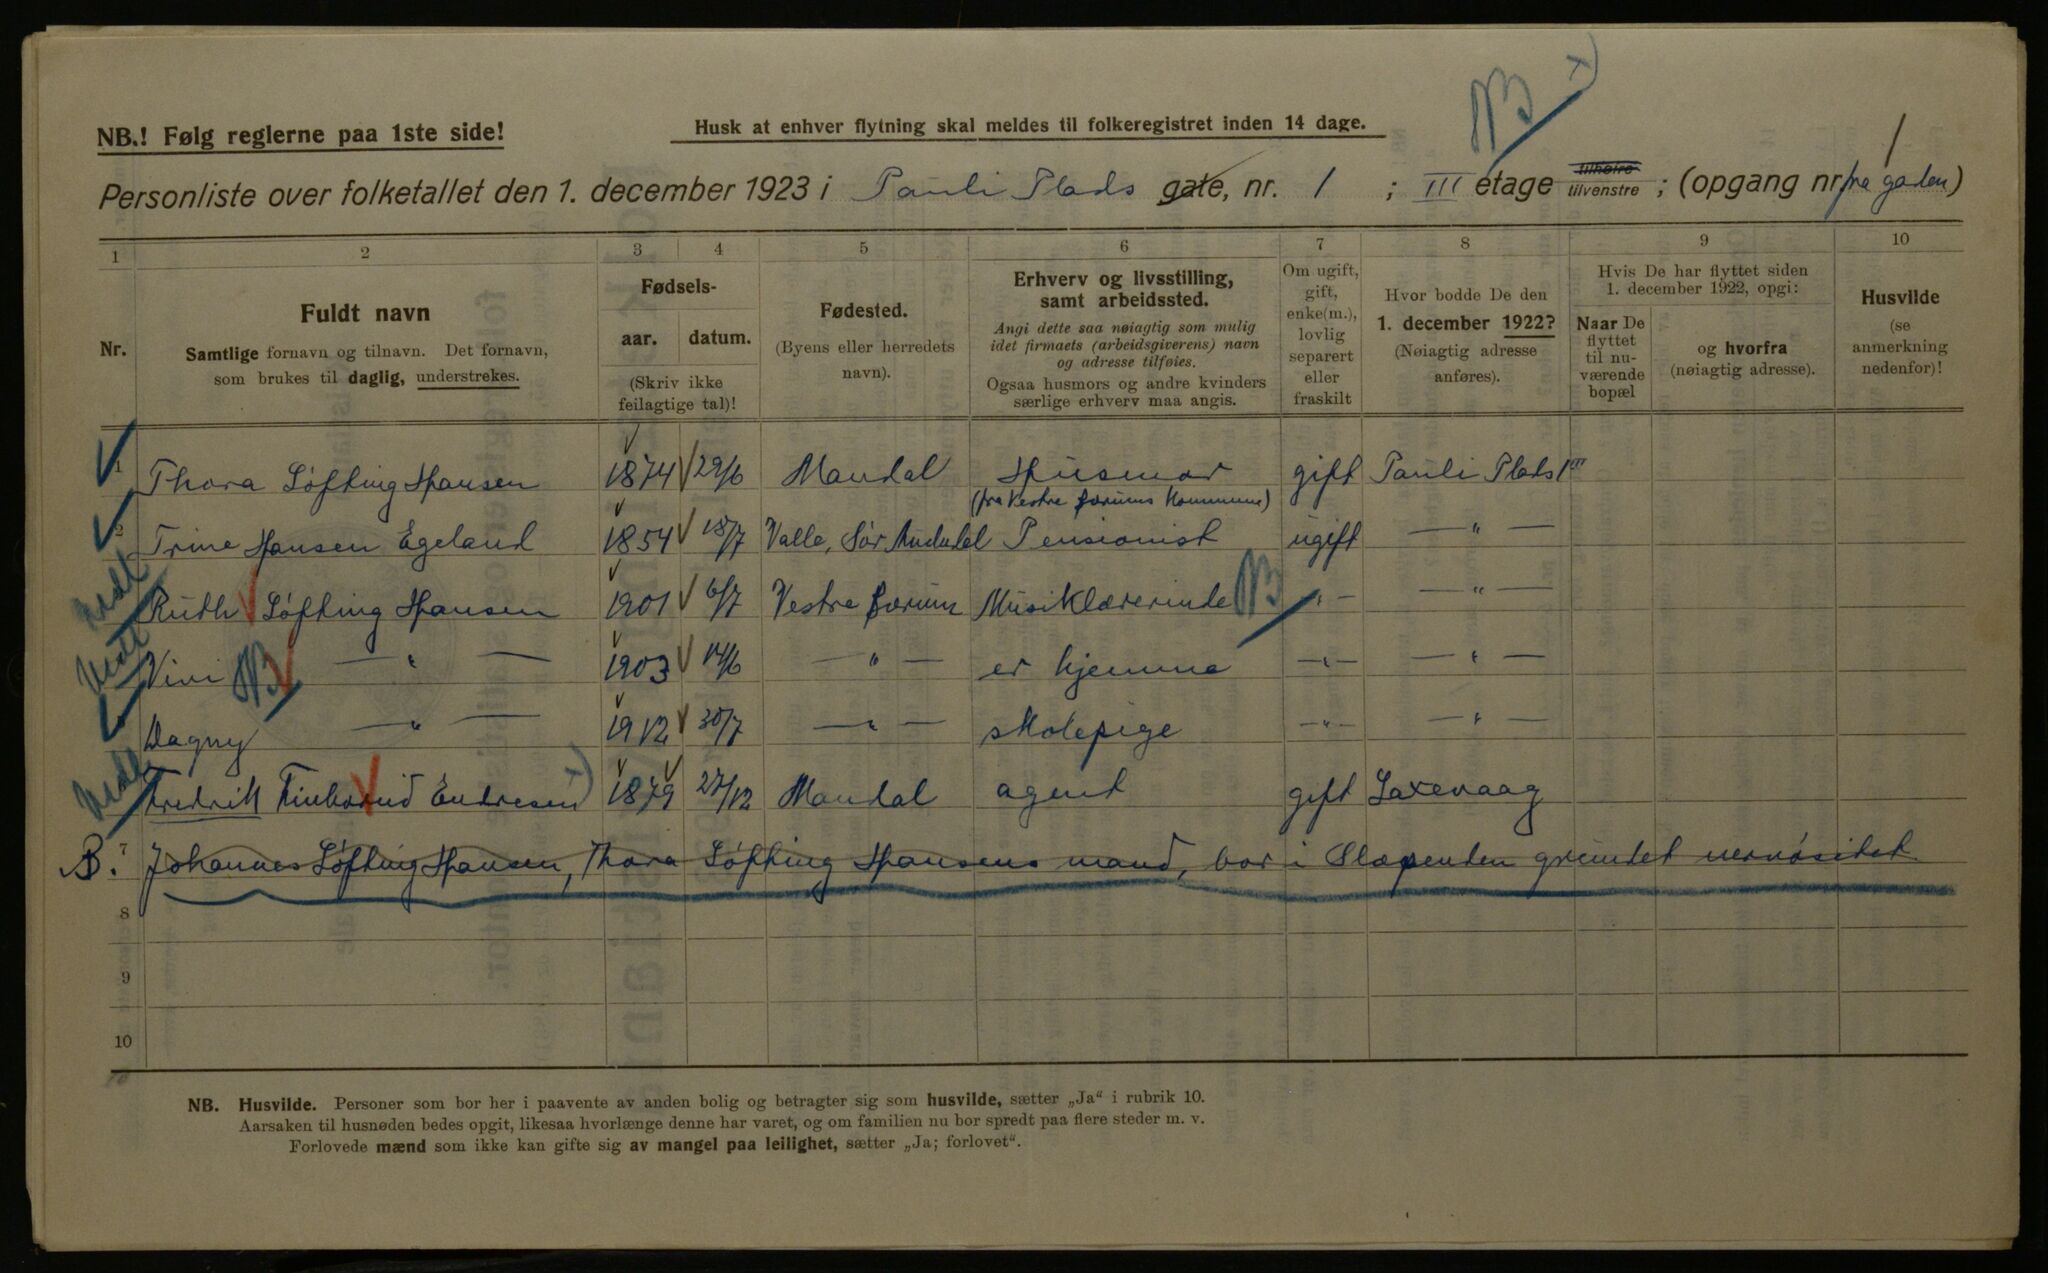 NB.! Følg reglerne paa 1ste side!
Husk at enhver flytning skal meldes til folkeregistret inden 14 dage.
NB
Personliste over folketallet den 1. december 1923 i Pauli Plads gate, nr. 1 ; III etage tilhøire tilvenstre ; (opgang nr. 1 fra gaden)
1 2 3 4 5 6 7 8 9 10
Nr.
Fuldt navn
Samtlige fornavn og tilnavn. Det fornavn,
som brukes til daglig, understrekes.
Fødsels-
aar. datum.
(Skriv ikke
feilagtige tal)!
Fødested.
(Byens eller herredets
navn).
Erhverv og livsstilling,
samt arbeidssted.
Angi dette saa nøiagtig som mulig
idet firmaets (arbeidsgiverens) navn
og adresse tilføies.
Ogsaa husmors og andre kvinders
særlige erhverv maa angis.
Om ugift,
gift,
enke(m.),
lovlig
separert
eller
fraskilt
Hvor bodde De den
1. december 1922?
(Nøiagtig adresse
anføres).
Hvis De har flyttet siden
1. december 1922, opgi:
Naar De
flyttet
til nu-
værende
bopæl
og hvorfra
(nøiagtig adresse).
Husvilde
(se
anmerkning
nedenfor)!
1 Thora Løfting Hansen 1874 29/6 Mandal Husmor gift Pauli Plads 1 III
(fra Vestre Færums Kommune)
2 Trine Hansen Egeland 1854 18/7 Valle, Sør Audndal Pensionist ugift — " —
Ruth Løfting Hansen 1901 6/7 Vestre Færum Musiklærerinde NB " — — " —
Vivi NB — " — 1903 14/6 — " — er hjemme — " — — " —
Dagny — " — 1912 30/7 — " — skolepige — " — — " —
Fredrik Endresen x) 1879 27/12 Mandal agent gift Laxevaag
7 Johannes Løfting Hansen, Thora Løfting Hansens mand, bor i Slæpenden grundet nervøsitet.
8
9
10
NB. Husvilde. Personer som bor her i paavente av anden bolig og betragter sig som husvilde, sætter „Ja“ i rubrik 10.
Aarsaken til husnøden bedes opgit, likesaa hvorlænge denne har varet, og om familien nu bor spredt paa flere steder m. v.
Forlovede mænd som ikke kan gifte sig av mangel paa leilighet, sætter „Ja; forlovet“.